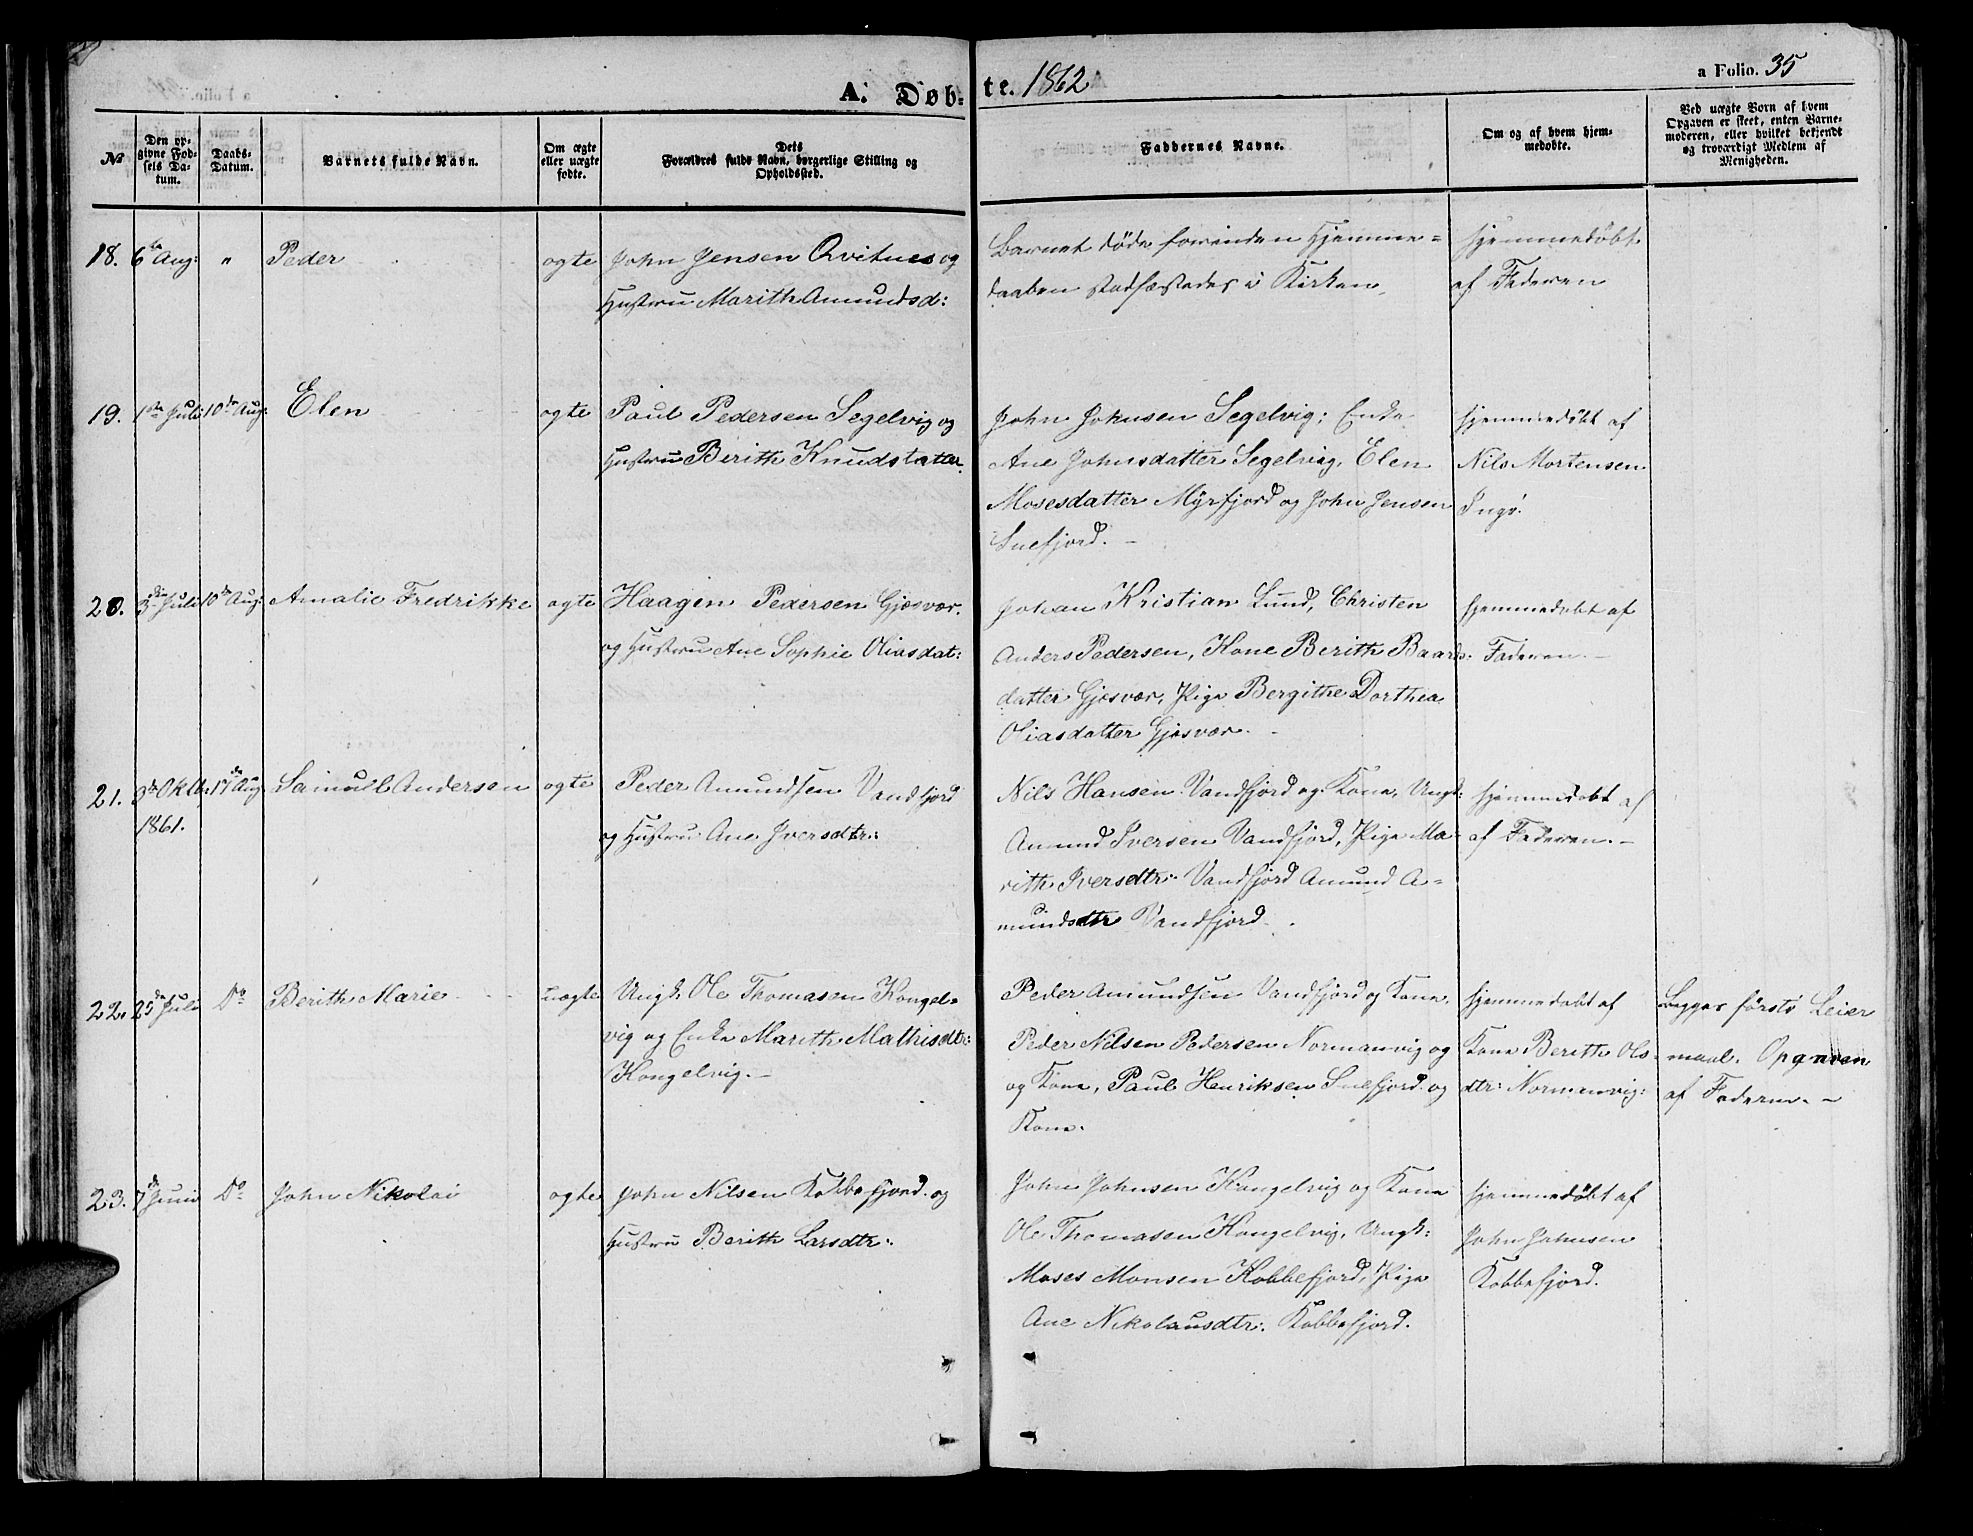 A. Døbte. 1862
a Folio. 35
№
Den opgivne Fødsels Datum.
Daabs-Datum.
Barnets fulde Navn.
Om ægte eller uægte fødte.
Dets Forældres fulde Navn, borgerlige Stilling og Opholdssted.
Faddernes Navne.
Om og af hvem hjemmedøbte.
Ved uægte Børn af hvem Opgaven er skeet, enten Barnemoderen, eller hvilket bekjendt og troværdigt Medlem af Menigheden.
18. 6te Aug: " Peder ægte
John Jensen Qvitnes og
Hustru Marith Amundsd:
Barnet døde forinden Hjemme=
daaben stadfæstedes i Kirken,
hjemmedøbt
af Faderen
19. 1ste Juli 10de Aug: Elen ægte
Paul Pedersen Segelvig og
Hustru Berith Knudsdatter.
John Johnsen Segelvig; Enke
Ane Johnsdatter Segelvig, Elen
Mosesdatter Myrfjord og John Jensen
Snefjord. –
hjemmedøbt af
Nils Mortensen
Ingø.
20. 3die Juli 10de Aug: Amalie Fredrikke ægte
Haagen Pedersen Gjæsvær.
og Hustru Ane Sophie Oliasdat:
Johan Kristian Lund, Christen
Anders Pedersen, Kone Berith Baards-
datter Gjæsvær, Pige Bergithe Dorthea
Oliasdatter Gjæsvær. –
hjemmedøbt af
Faderen. –
21. 3de Oktb: 1861. 17de Aug: Samuel Andersen ægte
Peder Amundsen Vandfjord
og Hustru Ane Iversdtr:
Nils Hansen Vandfjord og Kone, Ungk:
Amund Iversen Vandfjord, Pige Ma-
rith Iversdtr: Vandfjord Amund A=
mundsdtr Vandfjord.
hjemmedøbt af
af Faderen. –
22. 25de Juli Do Berith Marie uægte
Ungk. Ole Thomasen Kongel=
vig og Enke Marith Mathisdtr:
Kongelvig. –
Peder Amundsen Vandfjord og Kone,
Peder Nilsen Pedersen Normanvig og
og Kone, Paul Henriksen Snefjord og
Kone.
hjemmedøbt af
Kone Berith Ols-
dtr: Normanvig:
Begges første Leier
maal. Opgaven
af Faderen. –
23. 7de Juni Do John Nikolai ægte
John Nilsen Kobbefjord. og
Hustru Berith Larsdtr:
John Johnsen Kongelvig og Kone
Ole Thomasen Kongelvig, Ungk:
Moses Monsen Kobbefjord, Pige
Ane Nikolausdtr: Kobbefjord.
hjemmedøbt af
John Johnsen
Kobbefjord.